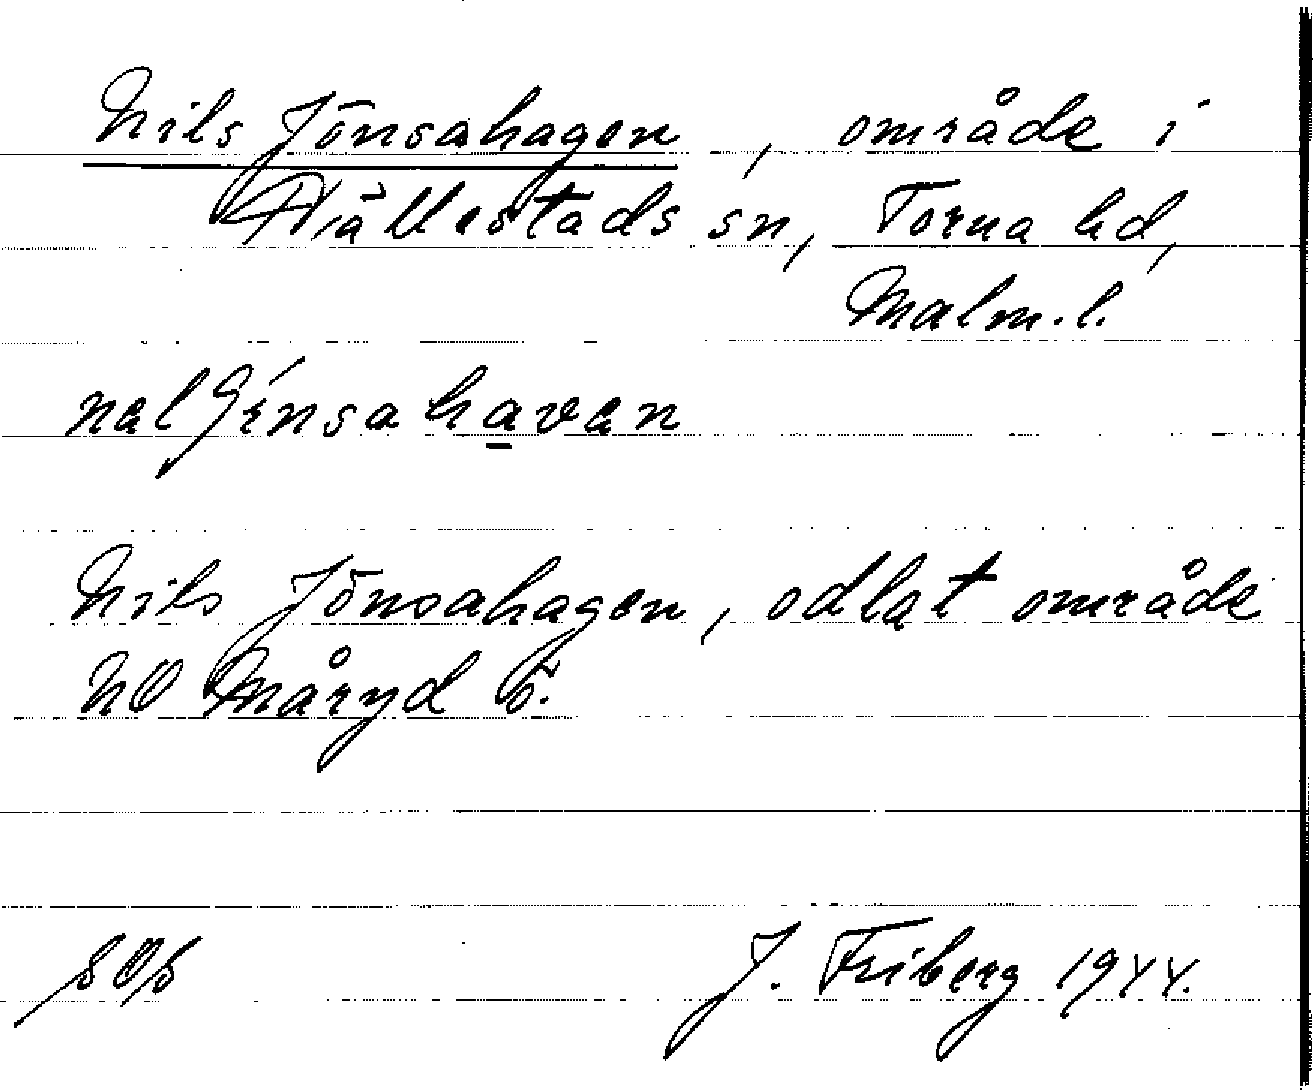 Nils Jönsahagen, område i
Hällestads sn, Torna hd,
Malm.l.
nelJénsahavan
Nils Jönsahagen, odlat område
NO Måryd
J. Friberg 1944.